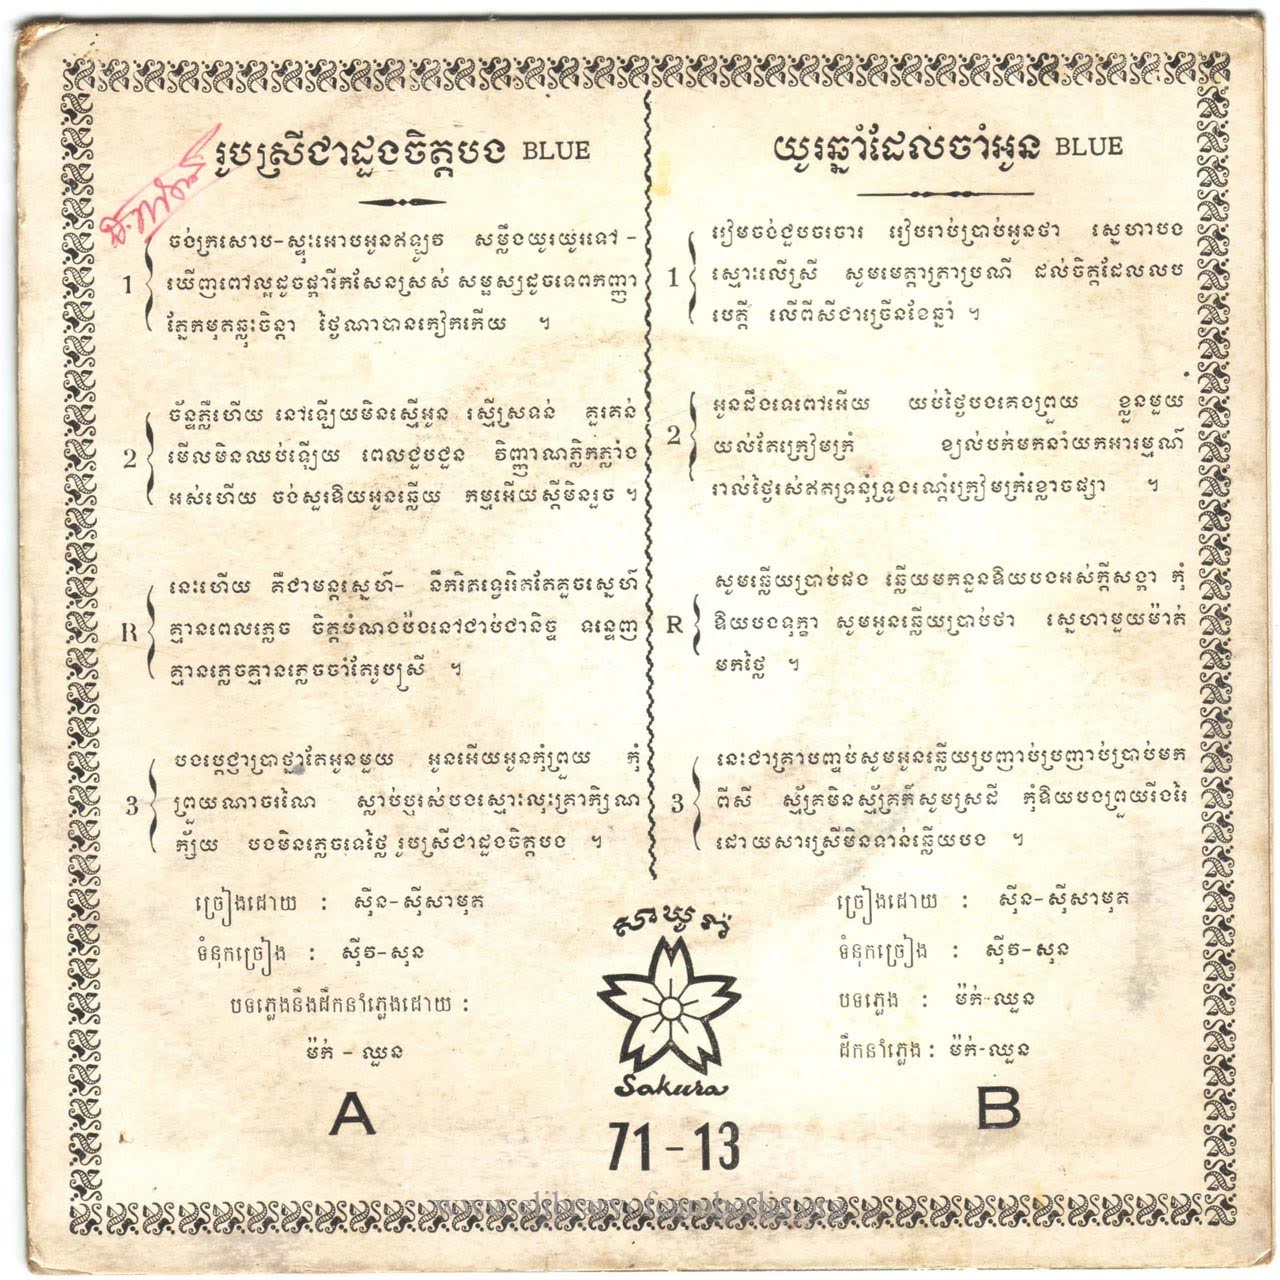 រូបស្រីជាដួងចិត្តបង BLUE
1
ចង់ក្រសោប-ស្ទុះអោបអូនឥឡូវ សម្លឹងយូរយូរទៅ-
ឃើញពៅល្អដូចផ្ការីកសែនស្រស់ សម្ផស្សដូចទេពកញ្ញា
ភ្នែកមុតឆ្លុះចិន្តា ថ្ងៃណាបានកៀកកើយ ។
2
ច័ន្ទភ្លឺហើយ នៅឡើយមិនស្មើអូន រស្មីស្រទន់ គួរគន់
មើលមិនឈប់ឡើយ ពេលជួបជួន វិញ្ញាណភ្លិកភ្លាំង
អស់ហើយ ចង់សួរឱយអូនឆ្លើយ កម្មអើយស្តីមិនរួច ។
R
នេះហើយ គឺជាមន្តស្នេហ៍- នឹករិតទ្វេររិតតែគួចស្នេហ៍
គ្មានពេលភ្លេច ចិត្តបំណងប៉ងនៅជាប់ជានិច្ច ទន្ទេញ
គ្មានភ្លេចគ្មានភ្លេចចាំតែរូបស្រី ។
3
បងប្តេជ្ញាប្រាថ្នាតែអូនមួយ អូនអើយអូនកុំព្រួយ កុំ
ព្រួយណាចរណៃ ស្លាប់ឬរស់បងស្មោះលុះគ្រាក្សិណ
ក្ស័យ បងមិនភ្លេចទេថ្លៃ រូបស្រីជាដួងចិត្តបង ។
ច្រៀងដោយ : ស៊ីន-ស៊ីសាមុត
ទំនុកច្រៀង : ស៊ីវ-សុន
បទភ្លេងនឹងដឹកនាំភ្លេងដោយ :
ម៉ក់ - ឈួន
A
យូរឆ្នាំដែលចាំអូន BLUE
1
រៀមចង់ជួបចរចារ រៀបរាប់ប្រាប់អូនថា ស្នេហាបង
ស្មោះលើស្រី សូមមេត្តាត្រាប្រណី ដល់ចិត្តដែលលប
បេតី លើពីសីជាច្រើនខែឆ្នាំ ។
2
អូនដឹងទេពៅអើយ យប់ថ្ងៃបងគេងព្រួយ ខ្លួនមួយ
យល់តែក្រៀមក្រំ ខ្យល់បក់មកនាំយកអារម្មណ៍
រាល់ថ្ងៃរស់ឥតទ្រនុំទ្រូងរណ្តំក្រៀមក្រំខ្លោចផ្សា ។
R
សូមឆ្លើយប្រាប់ផង ឆ្លើយមកនួនឱយបងអស់ក្តីសង្កា កុំ
ឱយបងទុក្ខា សូមអូនឆ្លើយប្រាប់ថា ស្នេហាមួយម៉ាត់
មកថ្លៃ ។
3
នេះជាគ្រាបញ្ចប់សូមអូនឆ្លើយប្រញាប់ប្រញាប់ប្រាប់មក
ពីសី ស្ម័គ្រមិនស្ម័គ្រក៏សូមស្រដី កុំឱយបងព្រួយរីងរៃ
ដោយសារស្រីមិនទាន់ឆ្លើយបង ។
ច្រៀងដោយ : ស៊ីន-ស៊ីសាមុត
ទំនុកច្រៀង : ស៊ីវ-សុន
បទភ្លេង : ម៉ក់-ឈួន
ដឹកនាំភ្លេង : ម៉ក់-ឈួន
B
សាឃូរ៉ា
Sakura
71-13